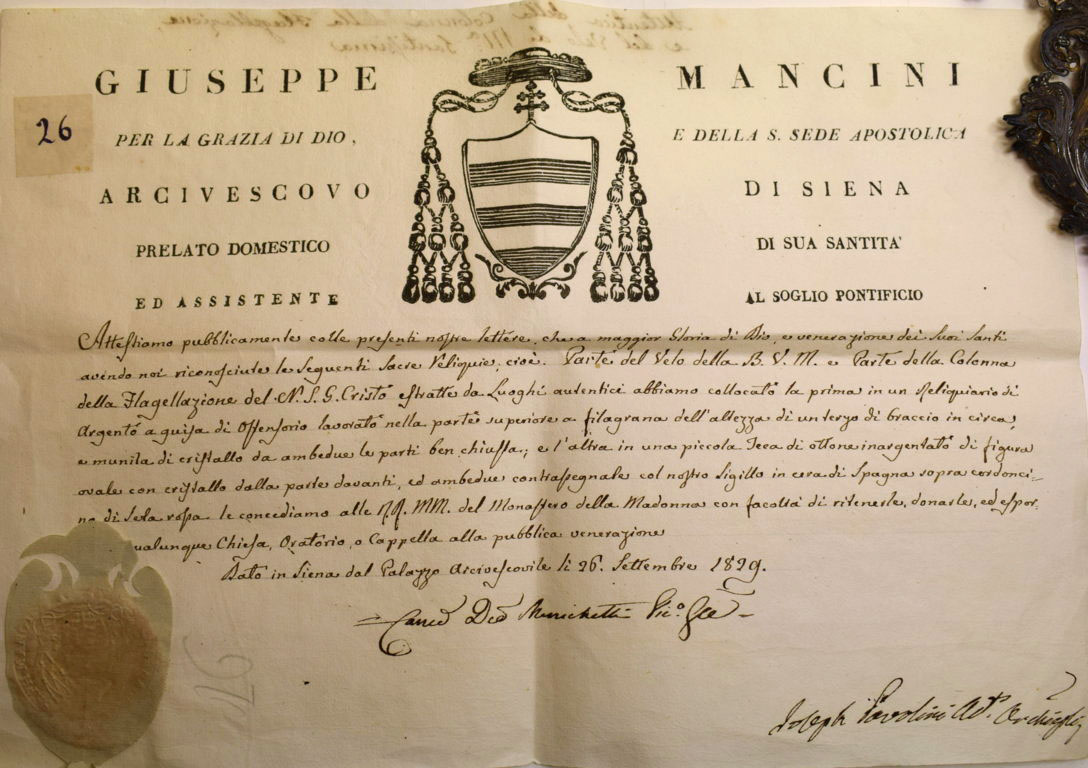 GIUSEPPE MANCINI
26
PER LA GRAZIA DI DIO, E DELLA S. SEDE APOSTOLICA
ARCIVESCOVO DI SIENA
PRELATO DOMESTICO DI SUA SANTITA'
ED ASSISTENTE AL SOGLIO PONTIFICIO
Attestiamo pubblicamente colle presenti nostre lettere, che a maggior Gloria di Dio, e venerazione dei Suoi Santi
avendo noi riconosciute le seguenti Sacre Reliquie, cioè. Parte del Velo della B. V. M. e Parte della Colonna
della Flagellazione del N. S. G. Cristo estratte da Luoghi autentici abbiamo collocato la prima in un Reliquiario di
Argento a guisa di Ostensorio lavorato nella parte superiore a filagrana dell'altezza di un terzo di braccio in circa,
e munita di cristallo da ambedue le parti ben chiussa, e l'altra in una piccola Teca di ottone inargentato di figura
ovale con cristallo dalla parte davanti, ed ambedue contrassegnate col nostro Sigillo in cera di Spagna sopra cordonci-
no di Seta rossa le concediamo alle RR. MM. del Monastero della Madonna con facoltà di ritenerle, donarle, ed espor-
qualunque Chiesa, Oratorio, o Cappella alla pubblica venerazione
Dato in Siena dal Palazzo Arcivescovile li 26. Settembre 1829.
Menichetti Vic.o
Joseph Pavolini